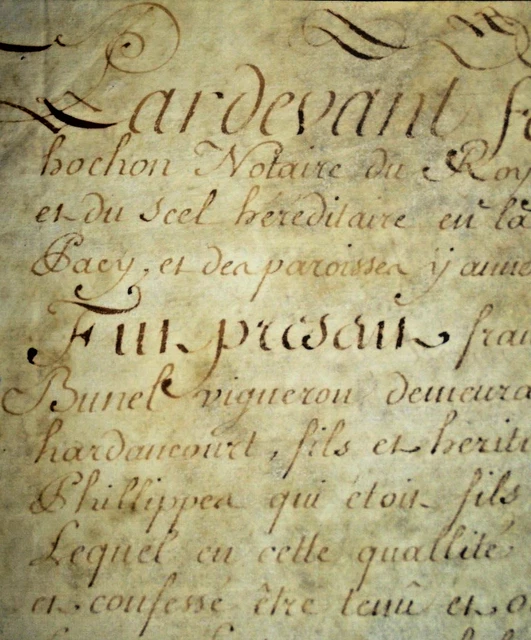 Pardevant
hochon Notaire du Roy
et du Scel hereditaire en la
Pacy, et des paroisses y anne
Fut present fran
Bunel vigneron demeura
hardancourt, fils et heriti
Phillippes qui étoit fils
Lequel en cette quallité
et confessé être tenû et o